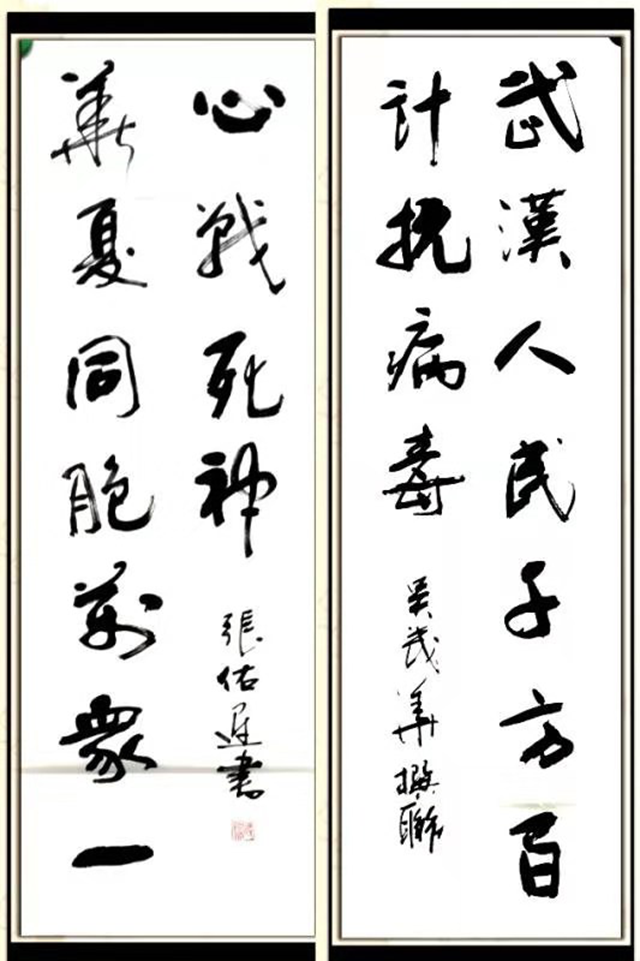 武漢人民千方百
計抗病毒
吳茂華撰聯
華夏同胞萬眾一
心戰死神
張佑遲書